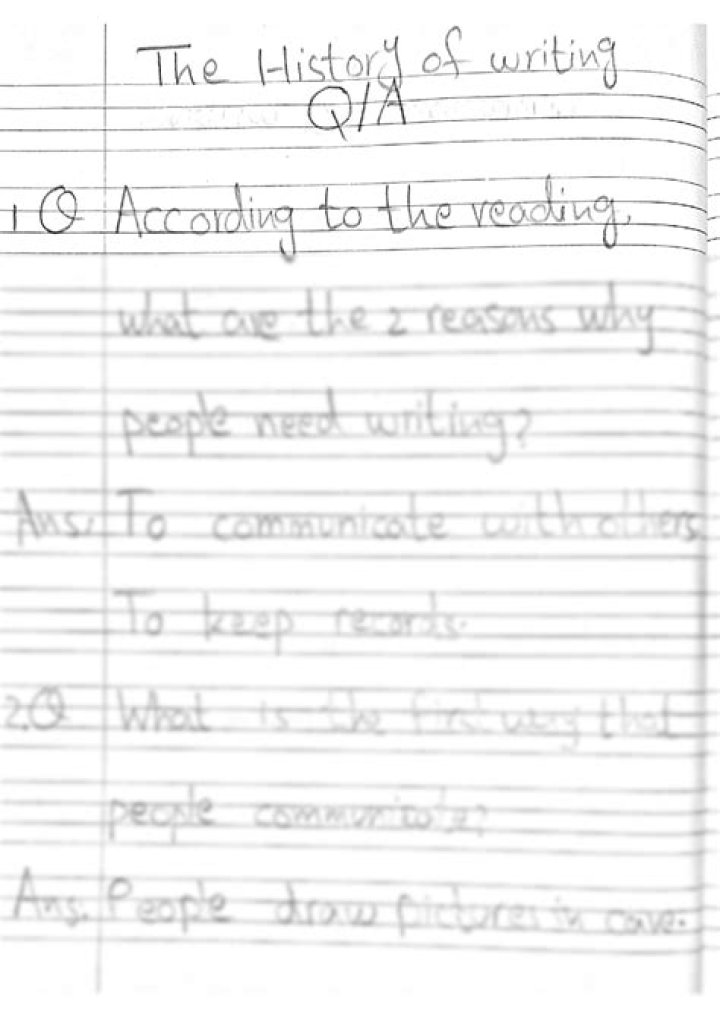 The History of writing
Q/A
1 Q According to the reading,
what are the 2 reasons why
people need writing?
Ans, To communicate with others
To keep records.
2.Q What is the first way that
people communicate?
Ans. People draw pictures in cave.